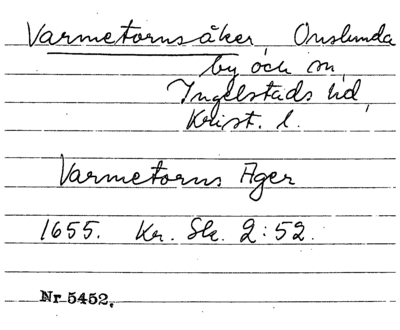 Varmetornsåker, Onslunda
by och sn,
Ingelstads hd,
Krist. l.
Varmetorns Ager
1655. Kr. Sk. 2:52.
Nr 5452.